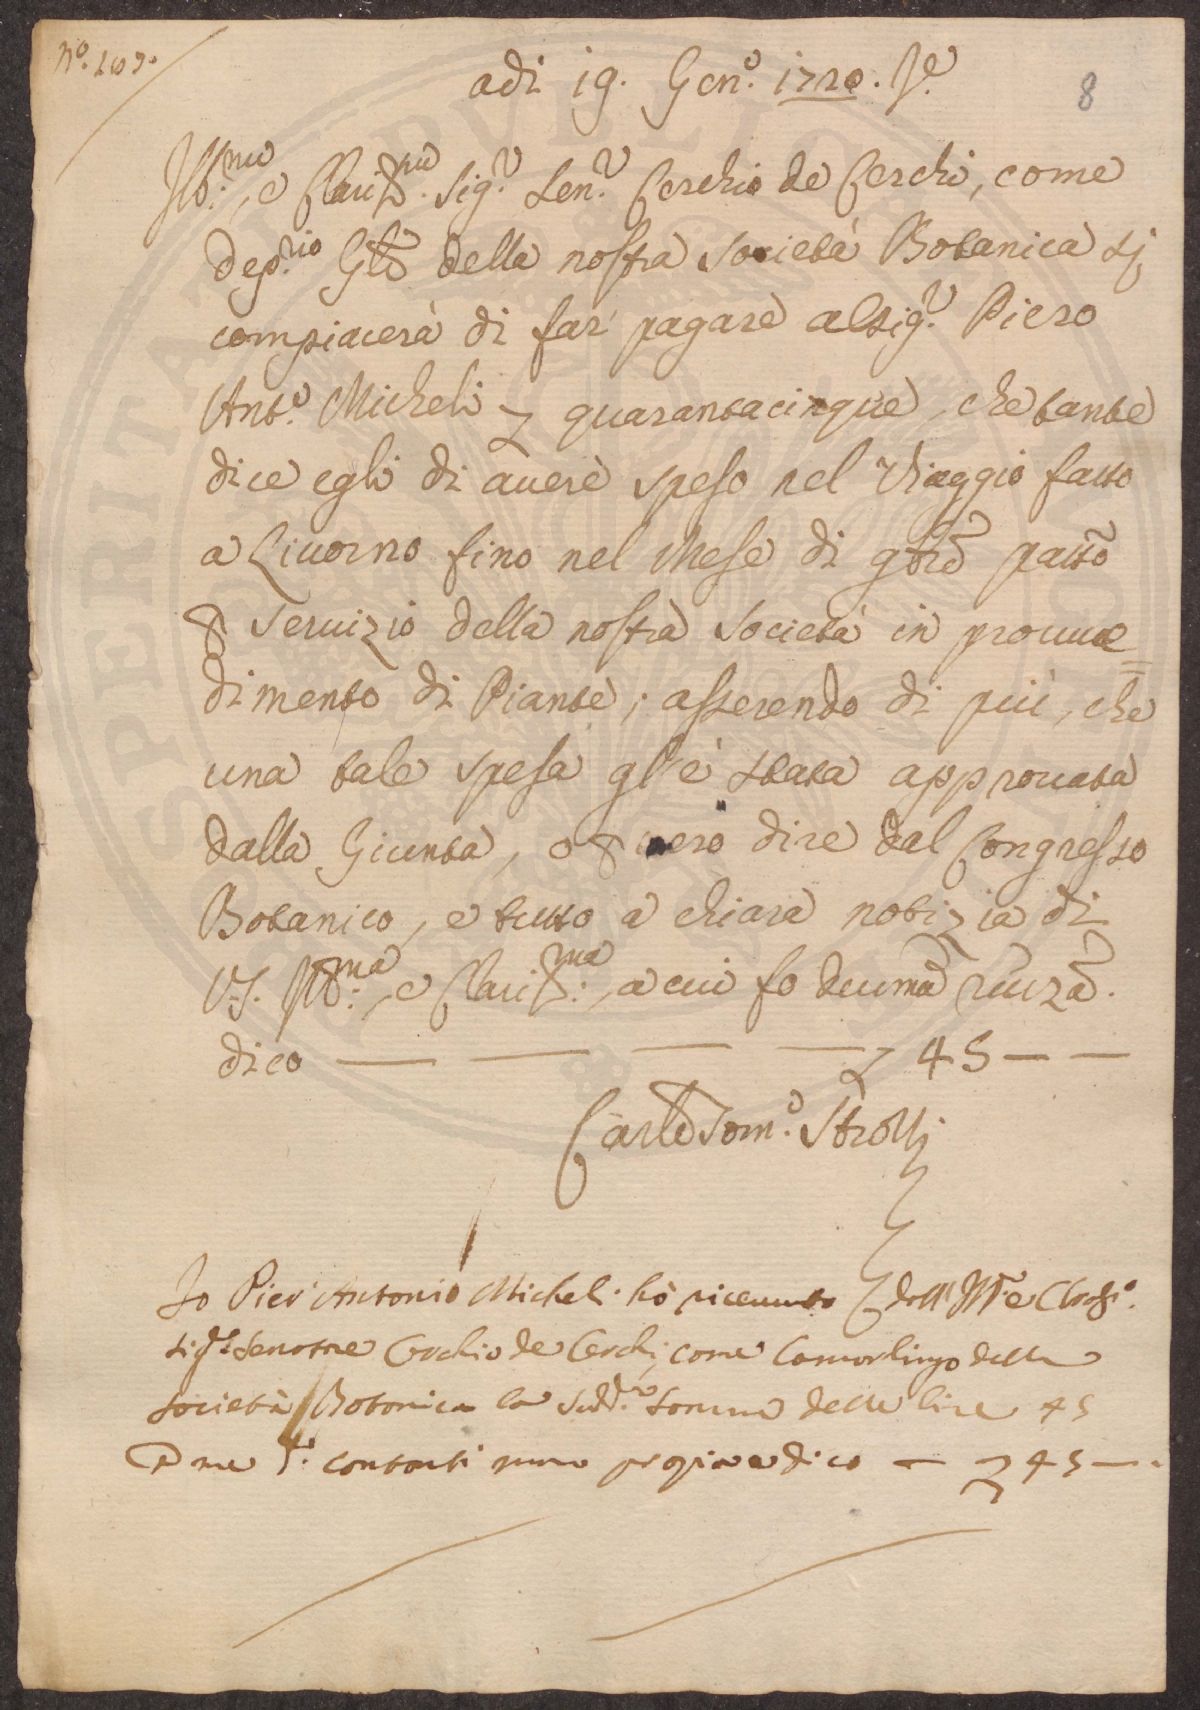 N.º 107.
8
adì 19. Gen.º 1720. I.º
Ill:mo, e Clariss:mo Sig.r Sen.r Cerchio de Cerchi, come
Dep.rio Gñle della nostra Società Botanica si
compiacerà di far pagare al Sig.r Piero
Ant.º Micheli £ quarantacinque, che tante
dice egli di avere speso nel Viaggio fatto
a Livorno fino nel Mese di 9bre passto
p servizio della nostra Società in provve
dimento di Piante; asserendo di più, che
una tale spesa gl'è stata approvata
dalla Giunta, o p vero dire dal Congresso
Botanico, e tutto a chiara notizia di
V.S. Ill:ma, e Clariss:ma, a cui fo devma rivza.
dico — — — — £ 45 — —
Carlo Tom.º Strozzi
Io Pier Antonio Micheli hò ricevuto dall' Ill.e Clariss.º
Sig.r Senatore Cerchio de Cerchi, come Camarlingo della
Società Botanica la sudd.a somma delle lire 45
contanti mano propria dico — £ 45 — .
SOSPERITATI PVBLICAE